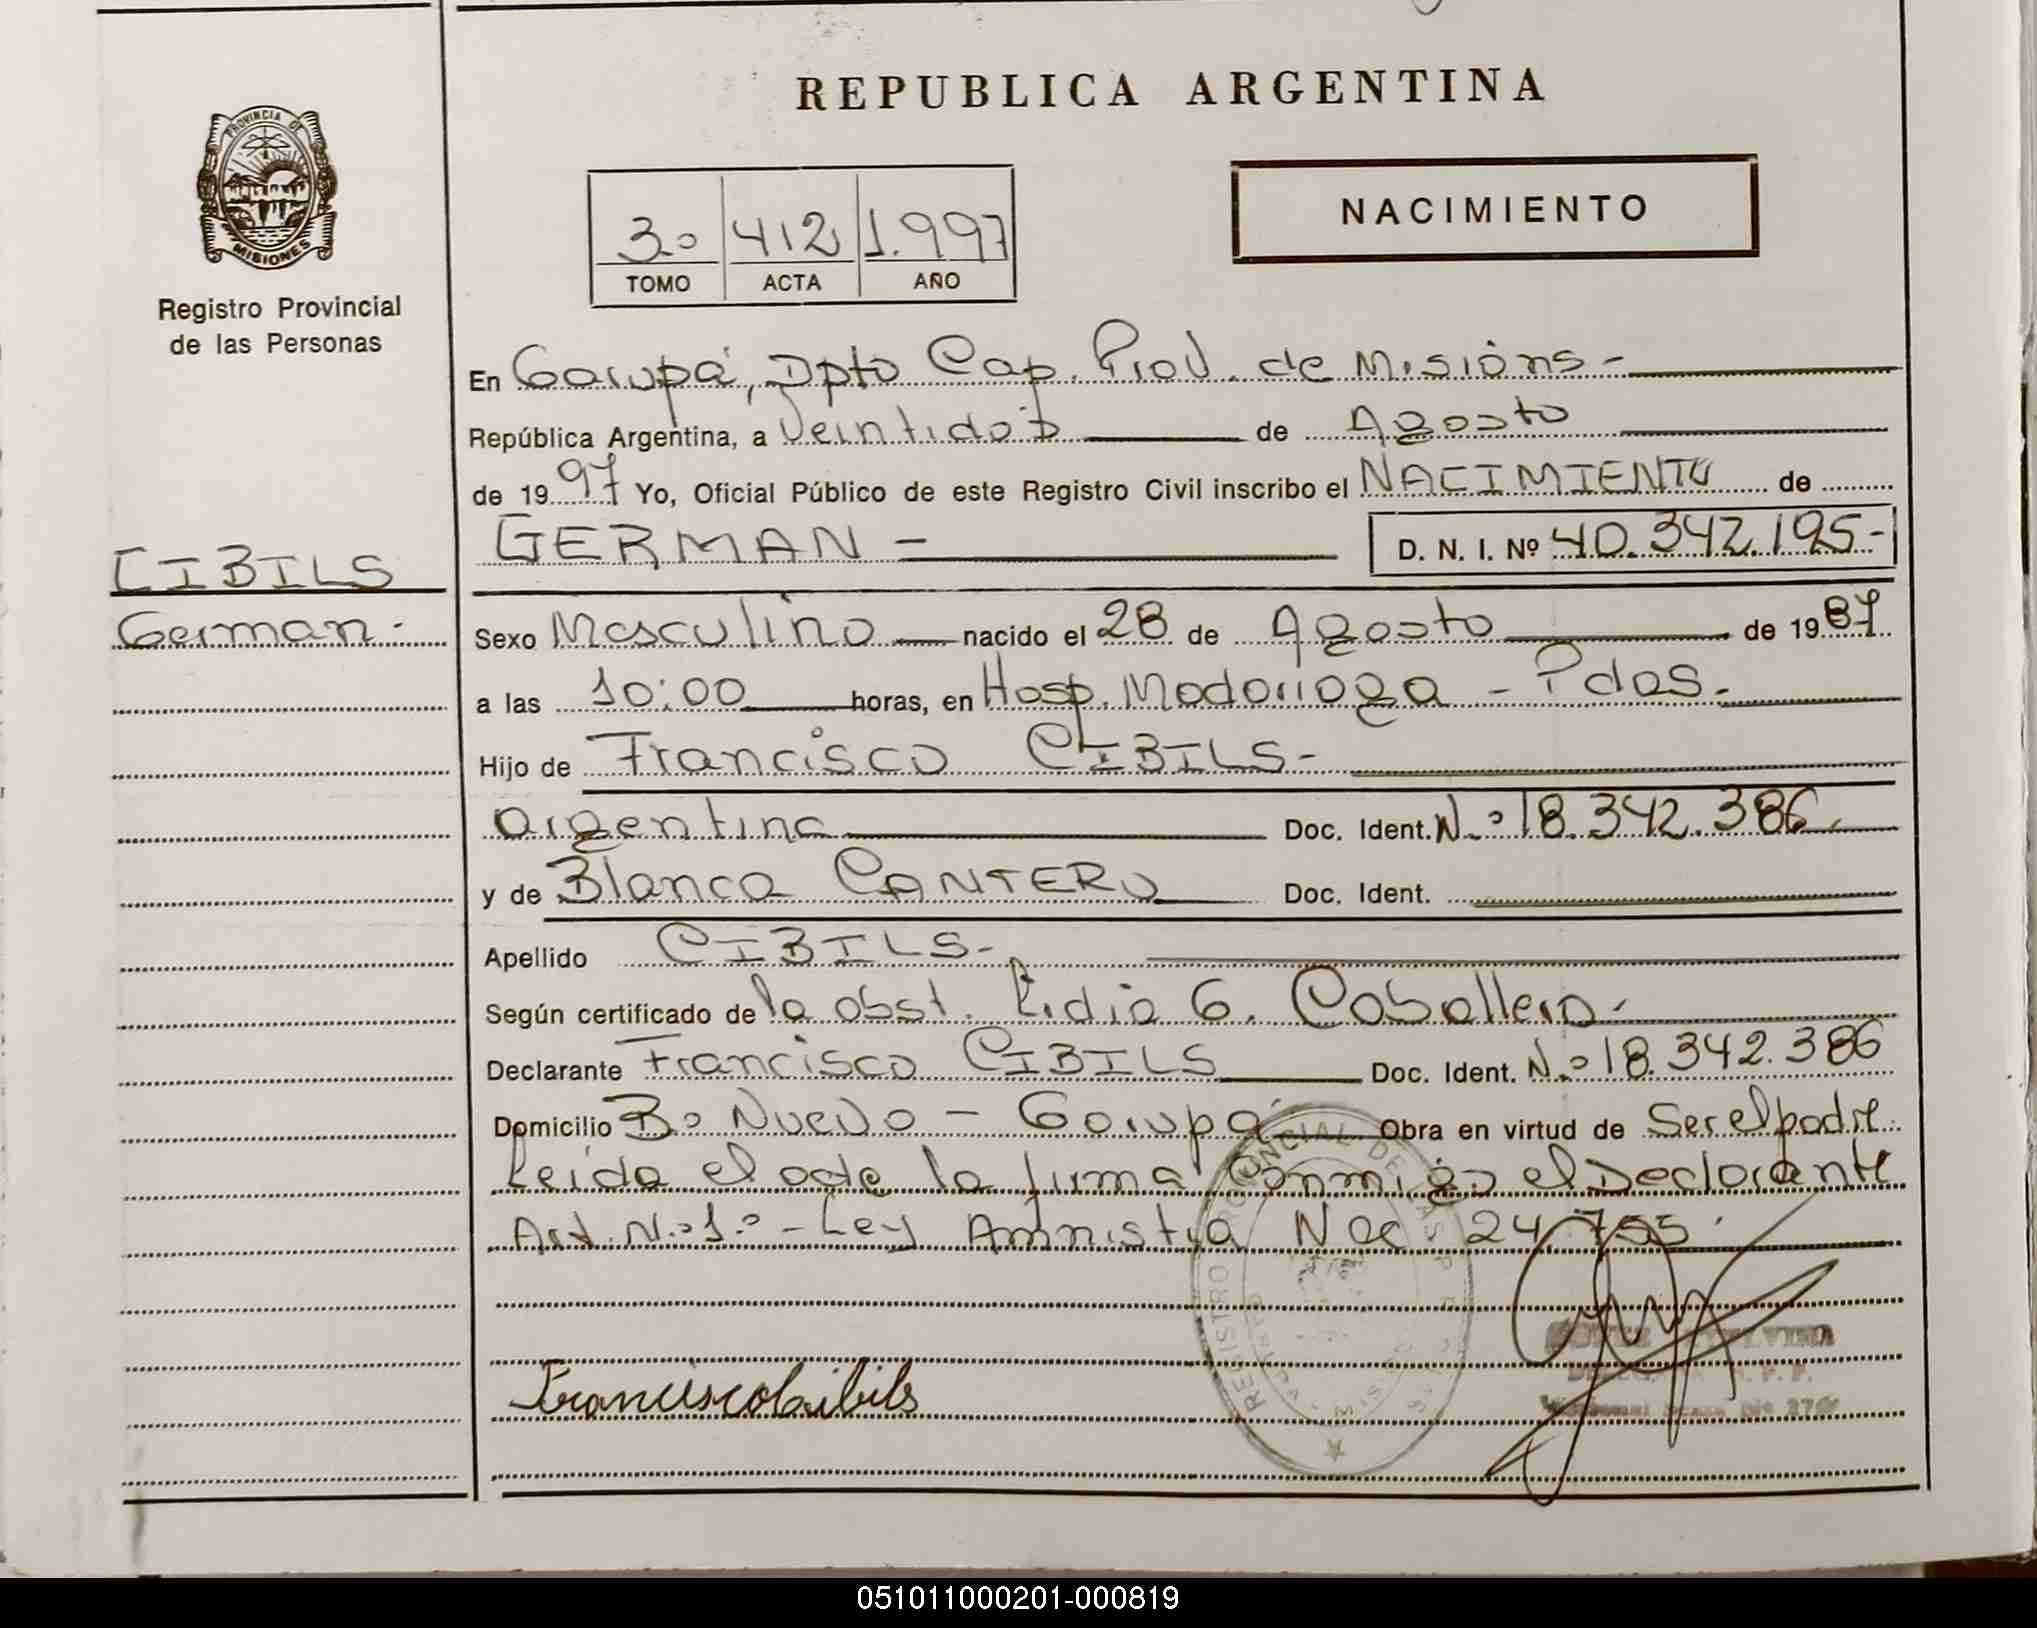 REPUBLICA ARGENTINA
PROVINCIA DE
MISIONES
Registro Provincial
de las Personas
NACIMIENTO
3º 412 1.997
TOMO ACTA AÑO
En Garupá, Dpto Cap. Prov. de Misións -
República Argentina, a Veintidos de Agosto
de 1997 Yo, Oficial Público de este Registro Civil inscribo el NACIMIENTO de
GERMAN - D. N. I. Nº 40.342.195-
CIBILS
German -
Sexo Masculino nacido el 28 de Agosto de 1987
a las 10:00 horas, en Hosp. Madariaga - Pdas.
Hijo de Francisco CIBILS-
argentina Doc. Ident. Nº 18.342.386
y de Blanca CANTERO Doc. Ident.
Apellido CIBILS-
Según certificado de la obst. Lidia G. Caballero-
Declarante Francisco CIBILS Doc. Ident. Nº 18.342.386
Domicilio Bº Nuevo - Garupá Obra en virtud de Ser el padre
Leida el acta la firma conmigo el Declarante
Art. Nº 1º - Ley Amnistia Nac 24.755.
REGISTRO PROVINCIAL DE LAS P
Francisco Cibils
051011000201-000819